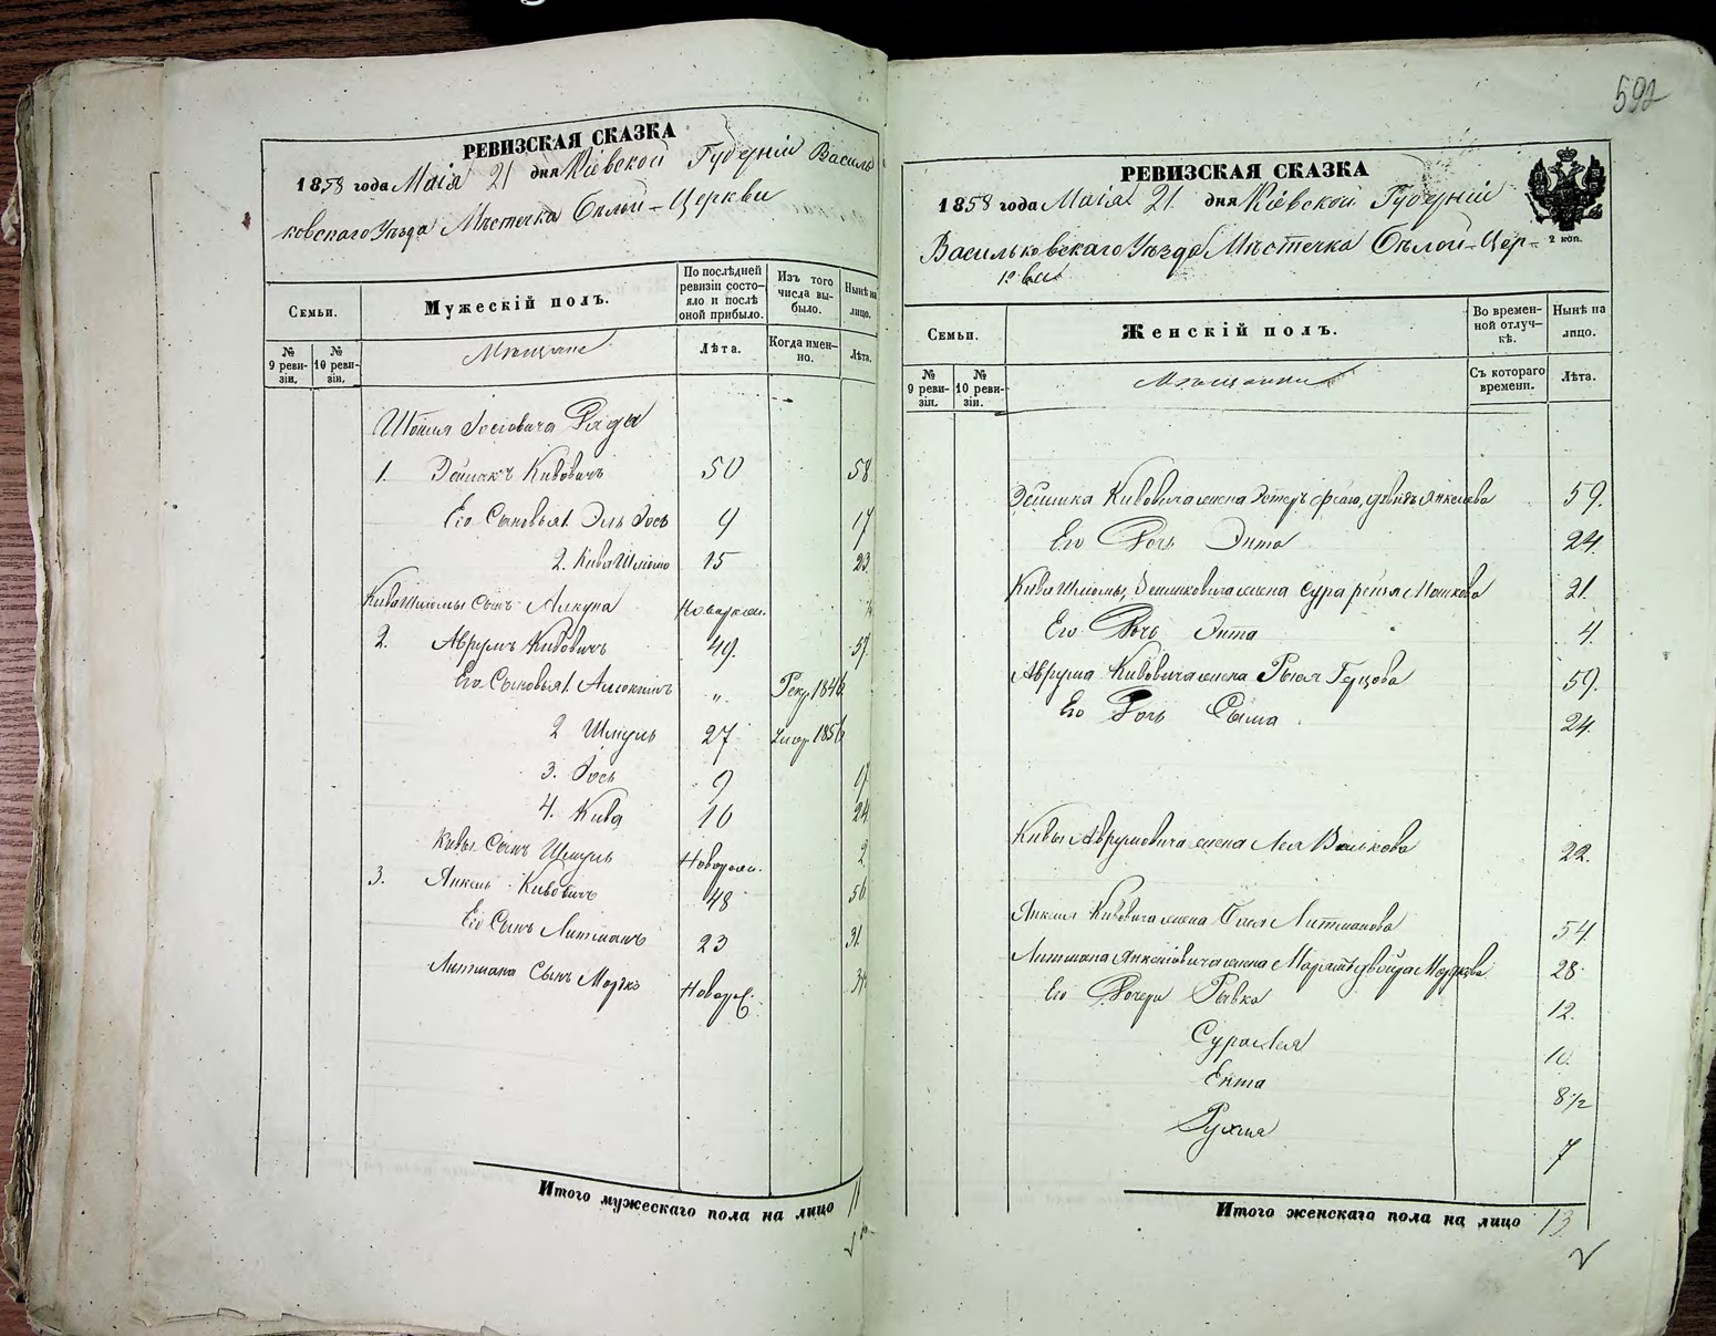 592
РЕВИЗСКАЯ СКАЗКА
1858 года Маія 21 дня Кіевской Губерніи Василь
ковскаго Уѣзда Мѣстечка Бѣлой-Церкви
Семьи.
Мужескій полъ.
По послѣдней ревизіи состояло и послѣ оной прибыло.
Изъ того числа выбыло.
Нынѣ на лицо.
№ 9 ревизіи.
№ 10 ревизіи.
Мѣщане
Лѣта.
Когда именно.
Лѣта.
Іосіовича
1. Кивовичъ 50 58
Его Сыновья 1. Эль Іось 9 17
2. Кива Шліомо 15 23
Кива Шліомы Сынъ Новорож.
2. Аврумъ Кивовичъ 49. 57.
Его Сыновья 1. „ Рекр. 1846
2 Шмуль 27 Умор. 1856
3. Іось 9 17
4. Кива 16 24
Кивы Сынъ Шмуль Новорож. 2
3. Янкель Кивовичъ 48 56
Его Сынъ Литманъ 23 31.
Литмана Сынъ Мошко
РЕВИЗСКАЯ СКАЗКА
1858 года Маія 21 дня Кіевской Губерніи
2 коп.
Васильковскаго Уѣзда Мѣстечка Бѣлой-Цер-
кви
Семьи.
Женскій полъ.
Во временной отлучкѣ.
Нынѣ на лицо.
№ 9 ревизіи.
№ 10 ревизіи.
Мѣщанки
Съ котораго времени.
Лѣта.
Кивовича жена Янкелева 59.
Его Дочь Энта 24
Кива Шліомы жена Сура Рейзя Мошкова 21.
Его Дочь Энта 4.
Аврума Кивовича жена Герцова 59.
Его Дочь Сыма 24.
Кивы Аврумовича жена Лея Волькова 22.
Янкеля Кивовича жена Литманова 54.
Литмана Янкелевича жена 28
Его Дочери Рывка 12.
Сура Лея 10.
Ента 8 1/2
Рухля 7
Итого мужескаго пола на лицо 11
Итого женскаго пола на лицо 13